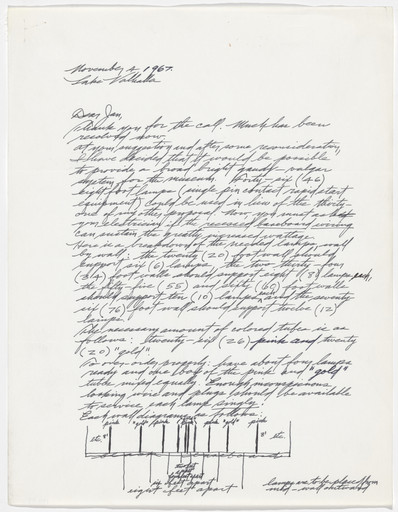 November 4, 1967.
Lake Valhalla
Dear Jan,
Thank you for the call. Much has been
resolved now.
at your suggestion and after some reconsideration,
I have decided that it would be possible
to provide a broad bright gaudy-vulgar
system for the museum. forty-six (46)
eight foot lamps (single pin contact rapid start
equipment) could be used in lieu of the thirty
one of my other proposal. Now you must as
your electrician if the baseboard wiring
can sustain the greatly increased wattage.
Here is a breakdown of the needed lamps, wall
by wall: the twenty (20) foot wall should
support six (6) lamps the two thirty-four
(34) foot walls should support eight (8) lamps each,
the fifty-five (55) and sixty (60) foot walls
should support ten (10) lamps and the seventy
six (76) foot wall should support twelve (12)
lamps.
The necessary amount of colored tubes is as
follows: twenty-six (26) pink and twenty
(20) "gold"
To over-order properly: have about four lamps
ready and one box of the pink and "gold"
tube mixed equally. Enough
looking wire and plugs should be available
to service each lamp singly.
Each wall diagrams as follows:
pink "gold" pink pink "gold" pink
etc. etc.
apart
six feet apart
eight feet apart
lamps are to be placed from
mid-wall outward